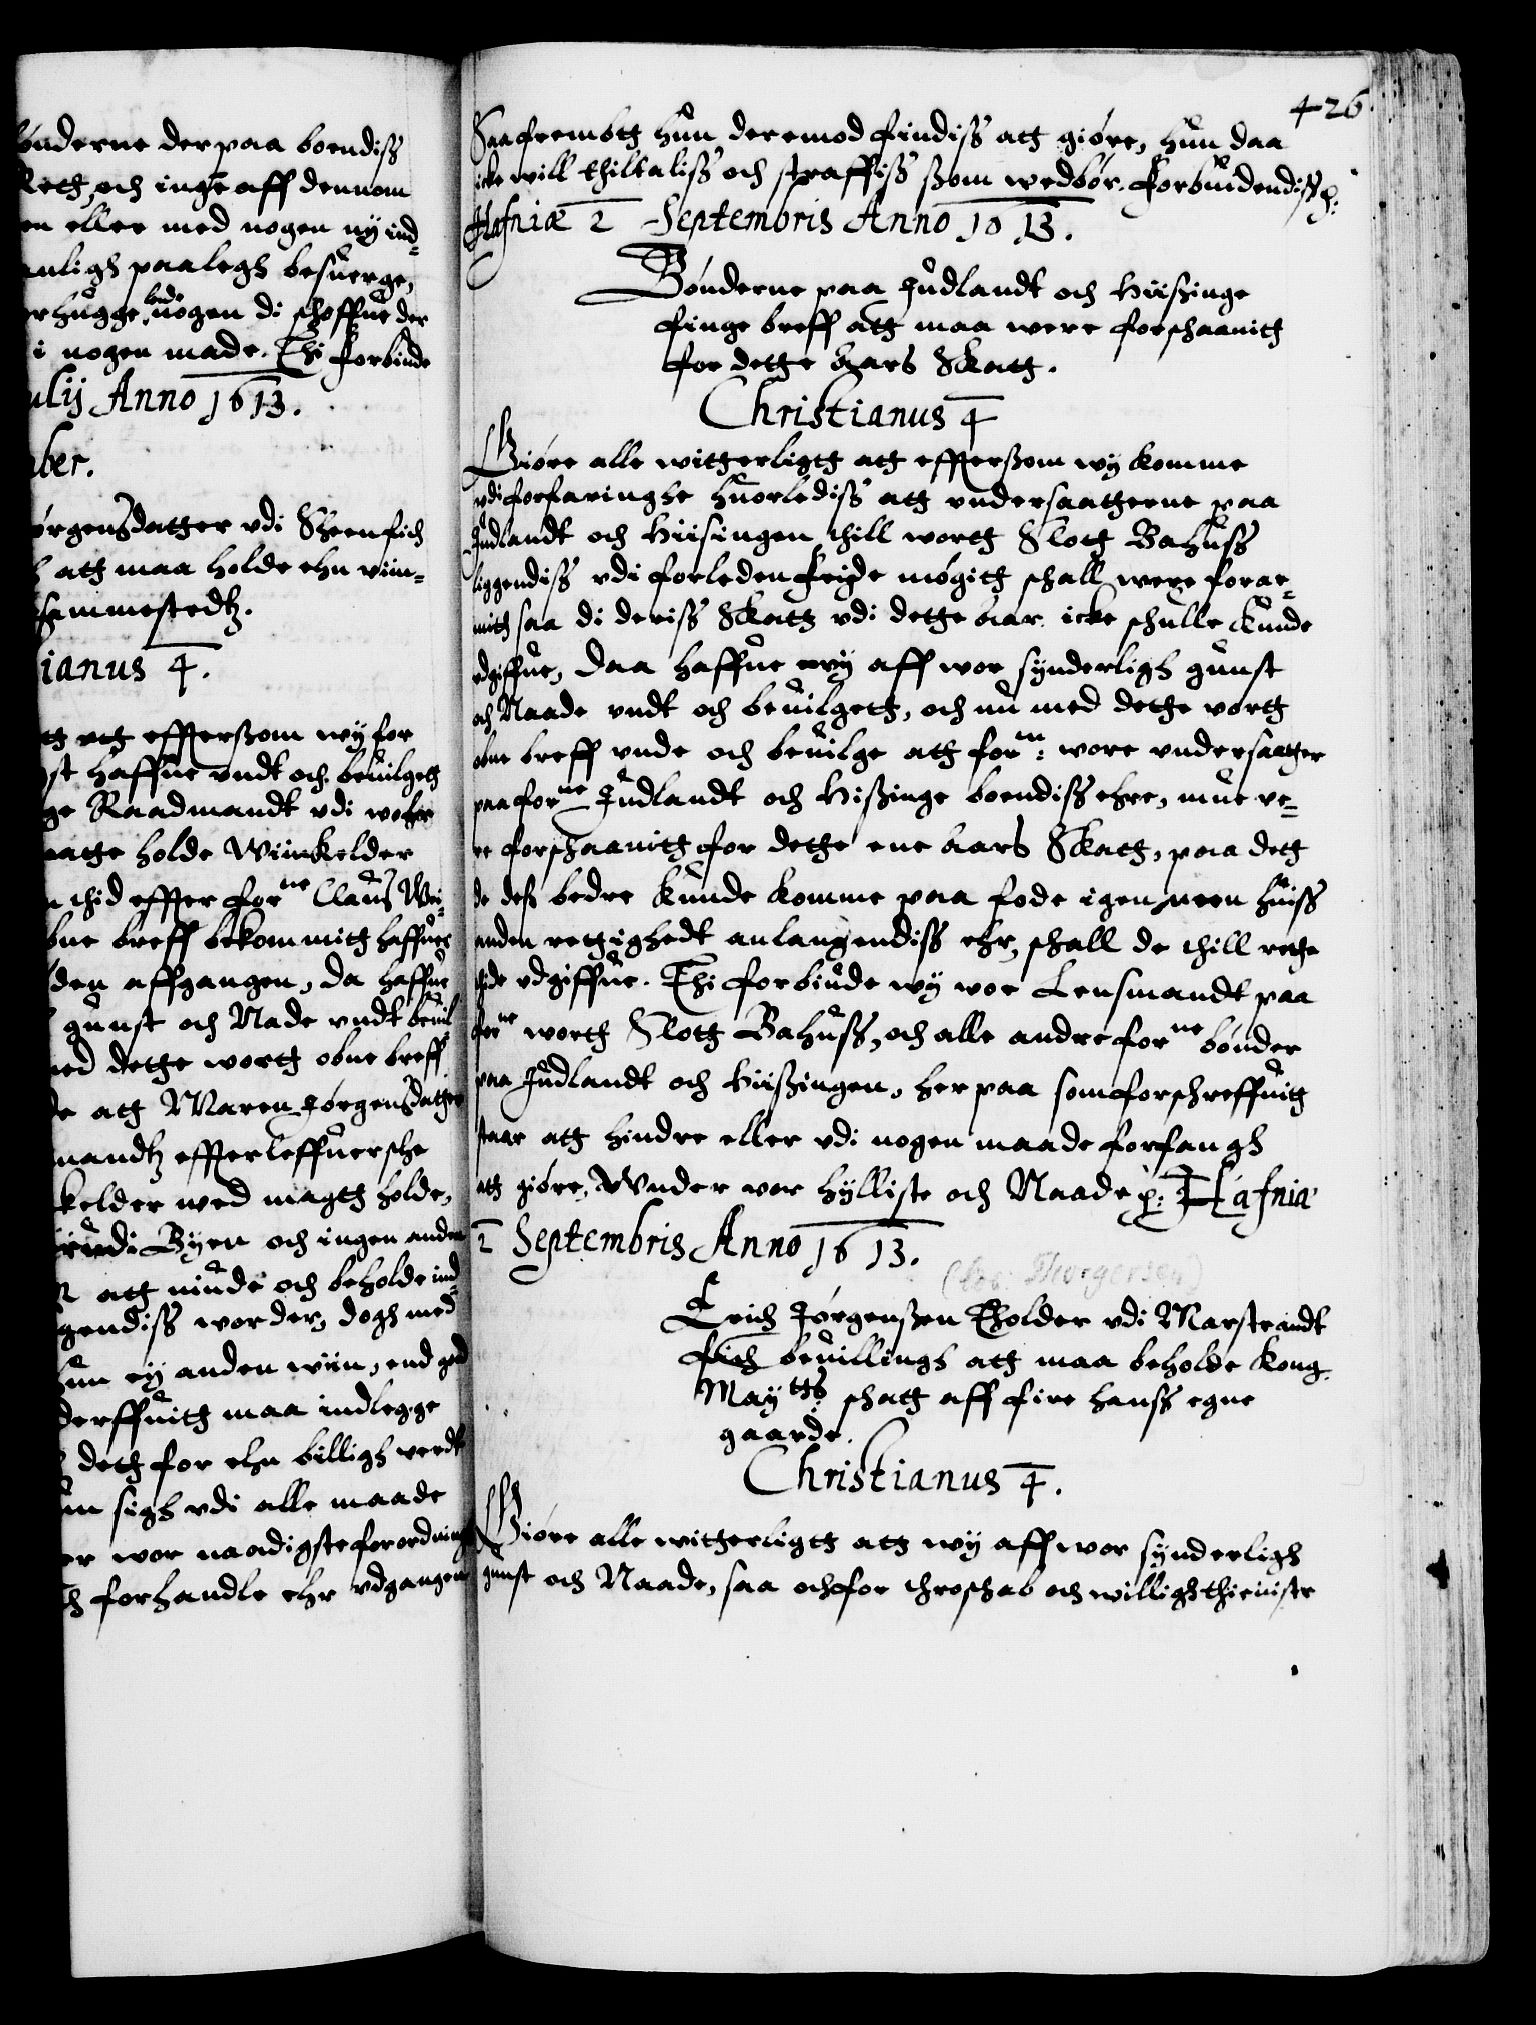 bønderne der paa boendiss
Retg, och inge aff dennom
en eller med nogen ny ind-
anligh paalegh besuerge,
erhugge lade nogen di schoffue der
i nogen made. Thi forbinde
ulij Anno 1613.
ber.
ørgensdatter vdi
att maa holde ehn viin-
sammestedtz.
ianus 4.
att effterssom wy for
st haffue vndt och beuilgett
ge Raadmandt vdi
matte holde Wiinkelder
thid effter forne Claus
bne breff bekommith haffuer
den affgangen, da haffue
gunst och Nade vndt beuil
med dette wortt obne breff
de att Maren Jørgensdatter
mandtz effterleffuersche
kelder wed magtt holde,
vdi Byen och ingen anden
att niude och beholde ind-
gendiss worder, dogh med
hun ey anden wiin, end god
derffuitt maa indlegge
dett for ehn billigh verdt
sigh vdi alle maade
er wor naadigste forordning
forhandle ehr vdgangen
426
Saa frembtt hun deremod findiss att giøre, hun daa
icke will thiltaliss och straffiss ssom wedbør. Forbindendiss p:
Hafniæ 2 Septembris Anno 1613.
Bønderne paa Judlandt och Hiissinge
finge breff att maa were forschaanitt
for dette Aars Skatt.
Christianus 4
Giøre alle witterligtt att effterssom wy komme
vdi forfaringhe huorlediss att vndersaatterne paa
Judlandt och Hiisingen thill wortt Slott Bahuss
liggendiss vdi forleden Feide møgitt schall were forar-
mith saa di deriss Skatt vdi dette Aar icke schulle kunde
vdgiffue, Daa haffue wy aff wor synderligh gunst
och Naade vndt och beuilgett, och nu med dette vortt
obne breff vnde och beuilge att forn: wore vndersaatter
paa forne Judlandt och Hissinge boendiss ehre, mue ve-
re forschaanitt for dette ene Aars Skatt, paa dett
de dess bedre kunde komme paa fode igen, meen huiss
anden rettighedt anlangendiss ehr, schall de thill rette
thide vdgiffue. Thi forbiude wy vor Lensmandt paa
forne wortt Slott Bahuss, och alle andre forne bønder
paa Judlandt och Hiissingen, her paa som forschreffuitt
staar att hindre eller vdi nogen maade forfangh
att giøre, Wnder vor hylliste och Naade p: Hafniæ
2 Septembris Anno 1613.
Thorgersen)
Erich Jørgenssen Tholder vdi Marstrandt
fich beuillingh att maa beholde Kong
Maytts schatt aff fire hanss egne
gaarde.
Christianus 4.
Giøre alle witterligtt att wy aff wor synderligh
gunst och Naade, saa och for throschab och willigh thieniste